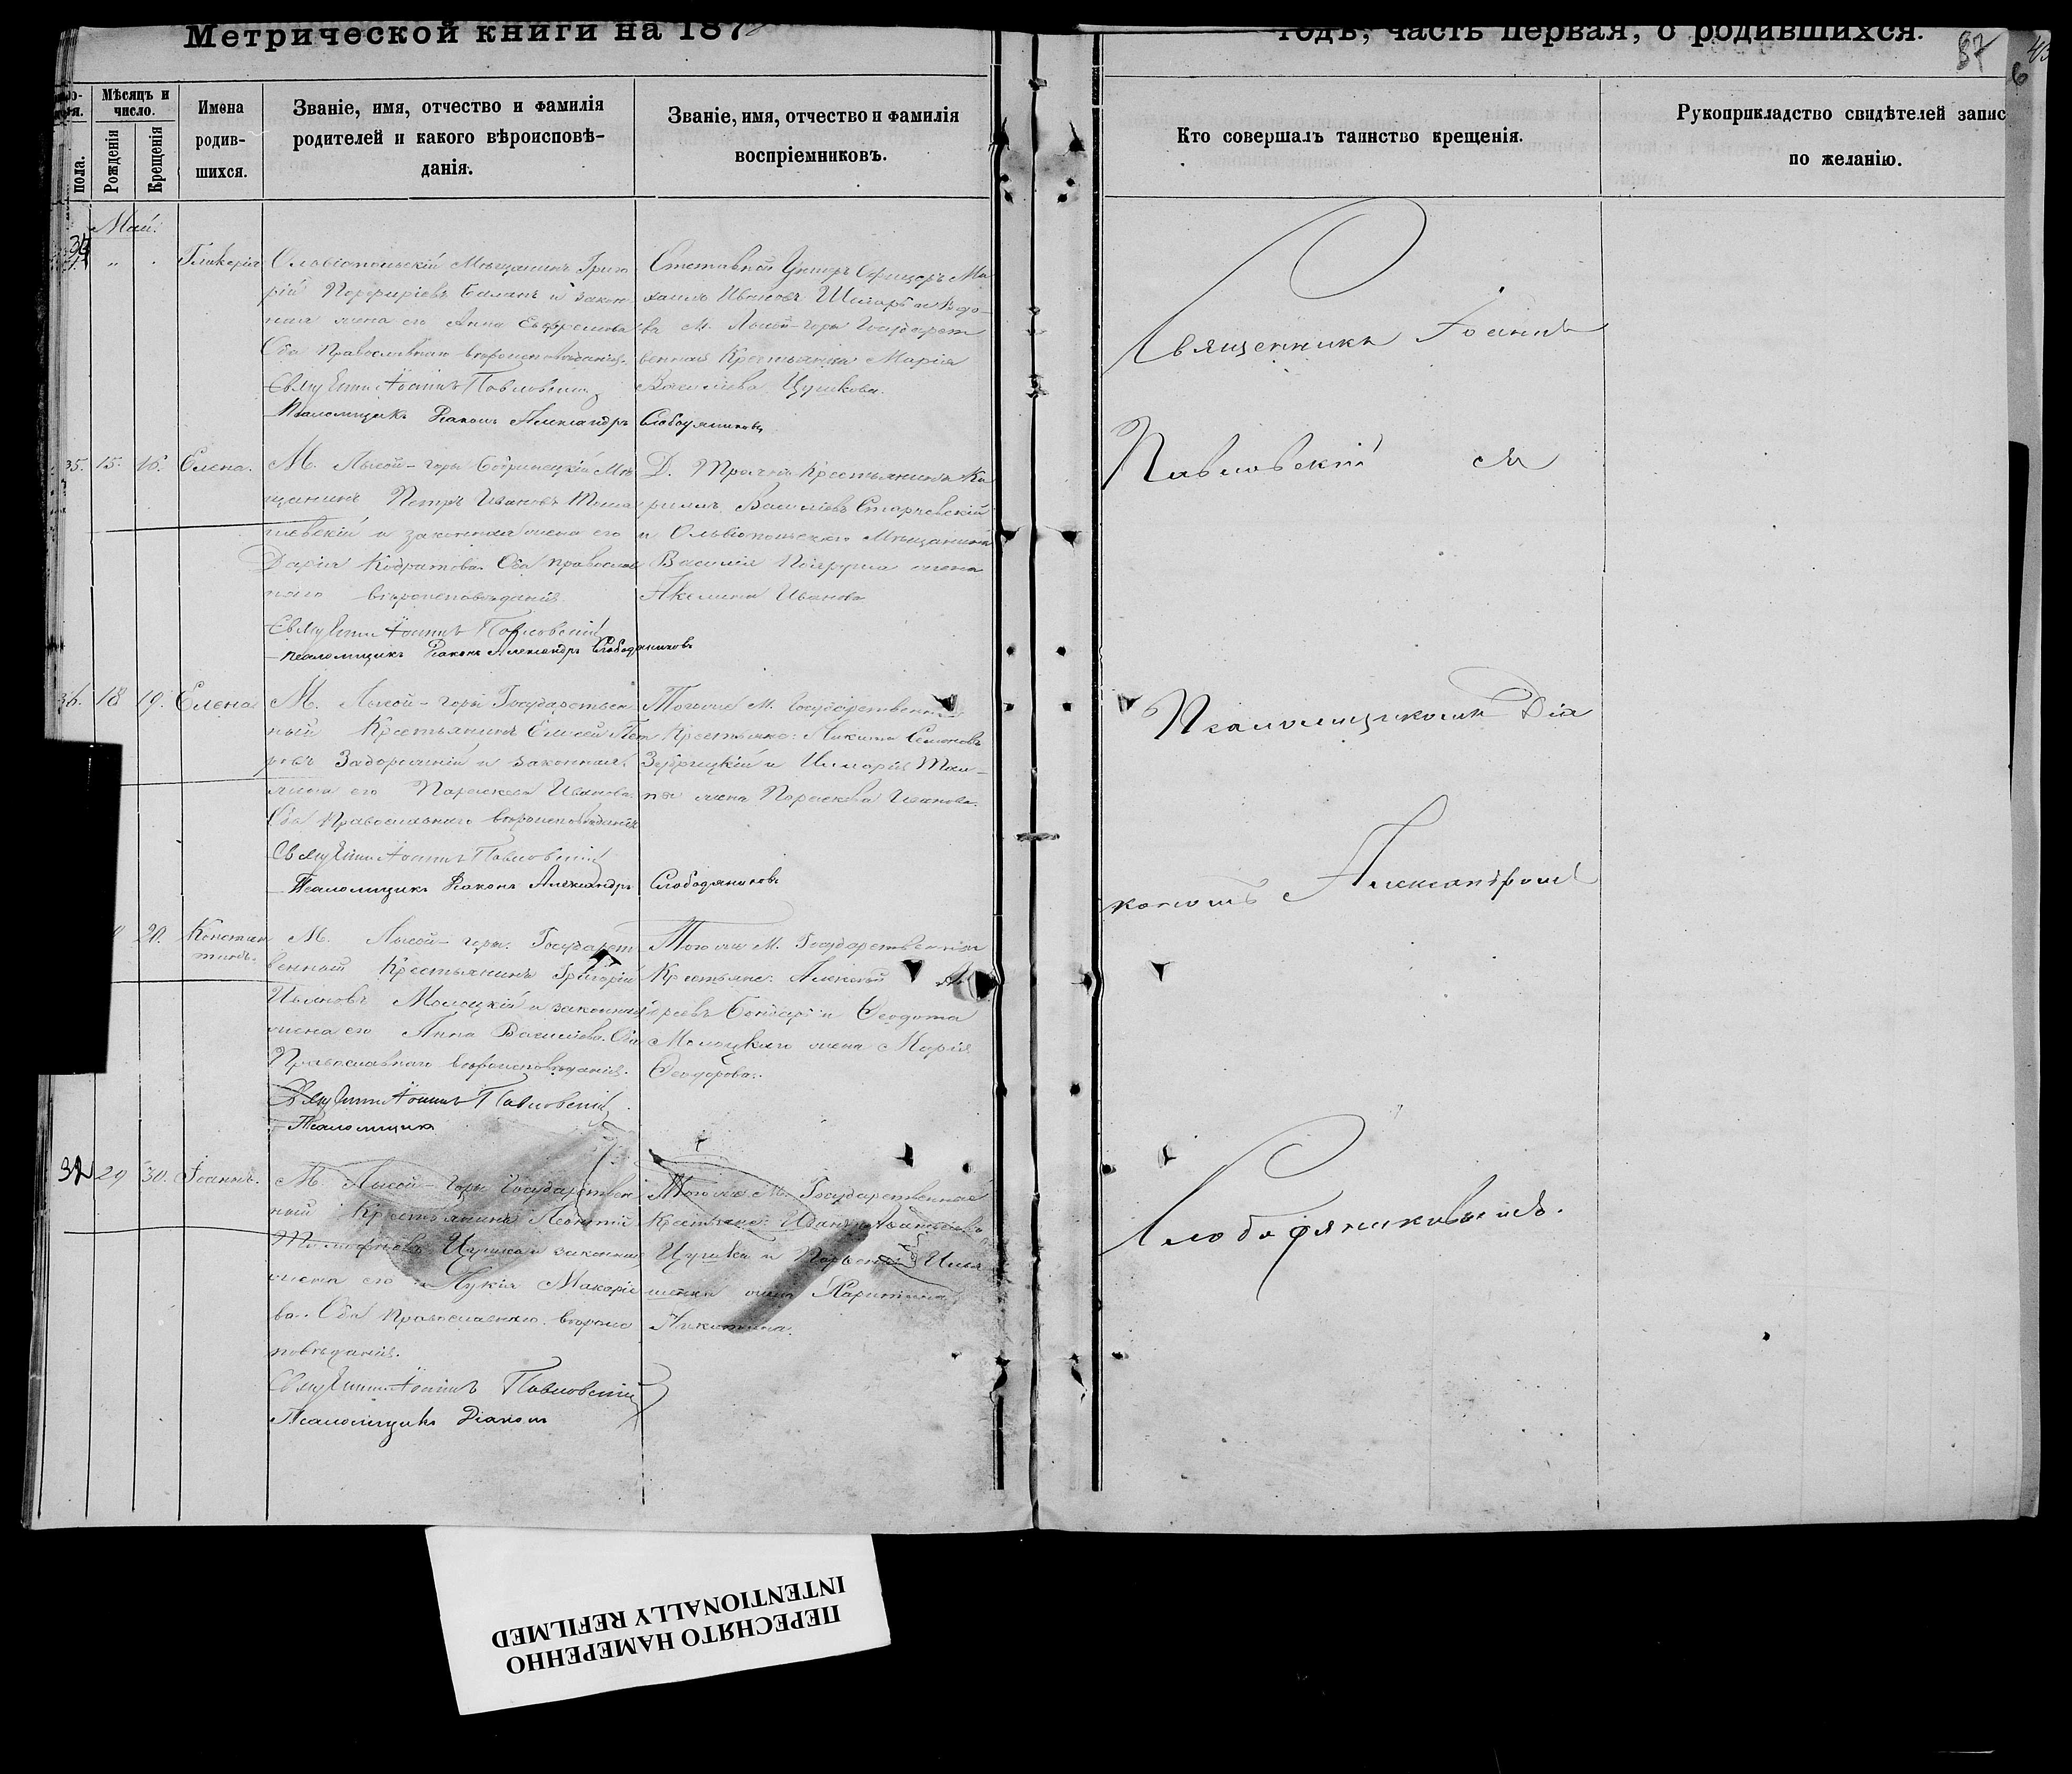 Метрической книги на 187
годъ, часть первая, о родившихся.
87
Мѣсяцъ и число.
пола.
Рожденія
Крещенія
Имена родив-
шихся.
Званіе, имя, отчество и фамилія
родителей и какого вѣроисповѣ-
данія.
Званіе, имя, отчество и фамилія
воспріемниковъ.
Кто совершалъ таинство крещенія.
Рукоприкладство свидѣтелей запис
по желанію.
Май.
34
Гликерія
Ольвіопольскій Мѣщанинъ Григо
рій Порфиріевъ Баланъ и закон
ная жена его Анна Евфремова
Оба Православнаго вѣроисповѣданія.
Священникъ Іоаннъ Павловскій
Псаломщикъ Діаконъ Александръ Слободяниковъ
Отставной Унтеръ Офицеръ Ми
хаилъ Ивановъ и Вдо-
ва М. Лысой-горы Государст
венная Крестьянка Марія
Васильева Цушкова.
35. 15. 16. Елена.
М. Лысой-горы Бобринецкій Мѣ
щанинъ Петръ Ивановъ Тома
шевскій и законная жена его
Дарія Кодратова. Оба Православ
наго вѣроисповѣданія
Священникъ Іоаннъ Павловскій
Псаломщикъ Діаконъ Александръ Слободяниковъ
Д. Крестьянинъ Ки
риллъ Василіевъ Старчевскій
и Ольвіопольскаго Мѣщанина
Василія жена
Акелина Иванова
36. 18 19. Елена
М. Лысой-горы Государствен
ный Крестьянинъ Елисей Пет
ровъ Задорожній и законная
жена его Параскева Иванова.
Оба Православнаго вѣроисповѣданія
Священникъ Іоаннъ Павловскій
Псаломщикъ Діаконъ Александръ Слободяниковъ
Того же М. Государственные
Крестьяне: Никита Семеновъ
и
жена Параскева Иванова.
20. Констан
тинъ.
М. Лысой-горы. Государст
венный Крестьянинъ Григорій
Ивановъ Молоцкій и законная
жена его Анна Василіева. Оба
Православнаго вѣроисповѣданія.
Священникъ Іоаннъ Павловскій
Псаломщикъ
Того же М. Государственные
Крестьяне: Алексѣй Ан
дреевъ Бондарь и Ѳеодота
Молоцкаго жена Марія
Ѳеодорова.
29 30. Іоаннъ.
М. Лысой-горы Государствен
ный Крестьянинъ Леонтій
Цушка и законная
жена его Лукія Макаріе
ва. Оба Православнаго вѣроис
повѣданія.
Священникъ Іоаннъ Павловскій
Псаломщикъ Діаконъ
Того же М. Государственные
Крестьяне: Иванъ
Цушка и Илья
шенки жена Харитина
Никитина.
Священникъ Іоаннъ
Павловскій съ
Псаломщикомъ Діа
кономъ Александромъ
Слободяниковымъ.
ПЕРЕСНЯТО НАМЕРЕННО
INTENTIONALLY REFILMED